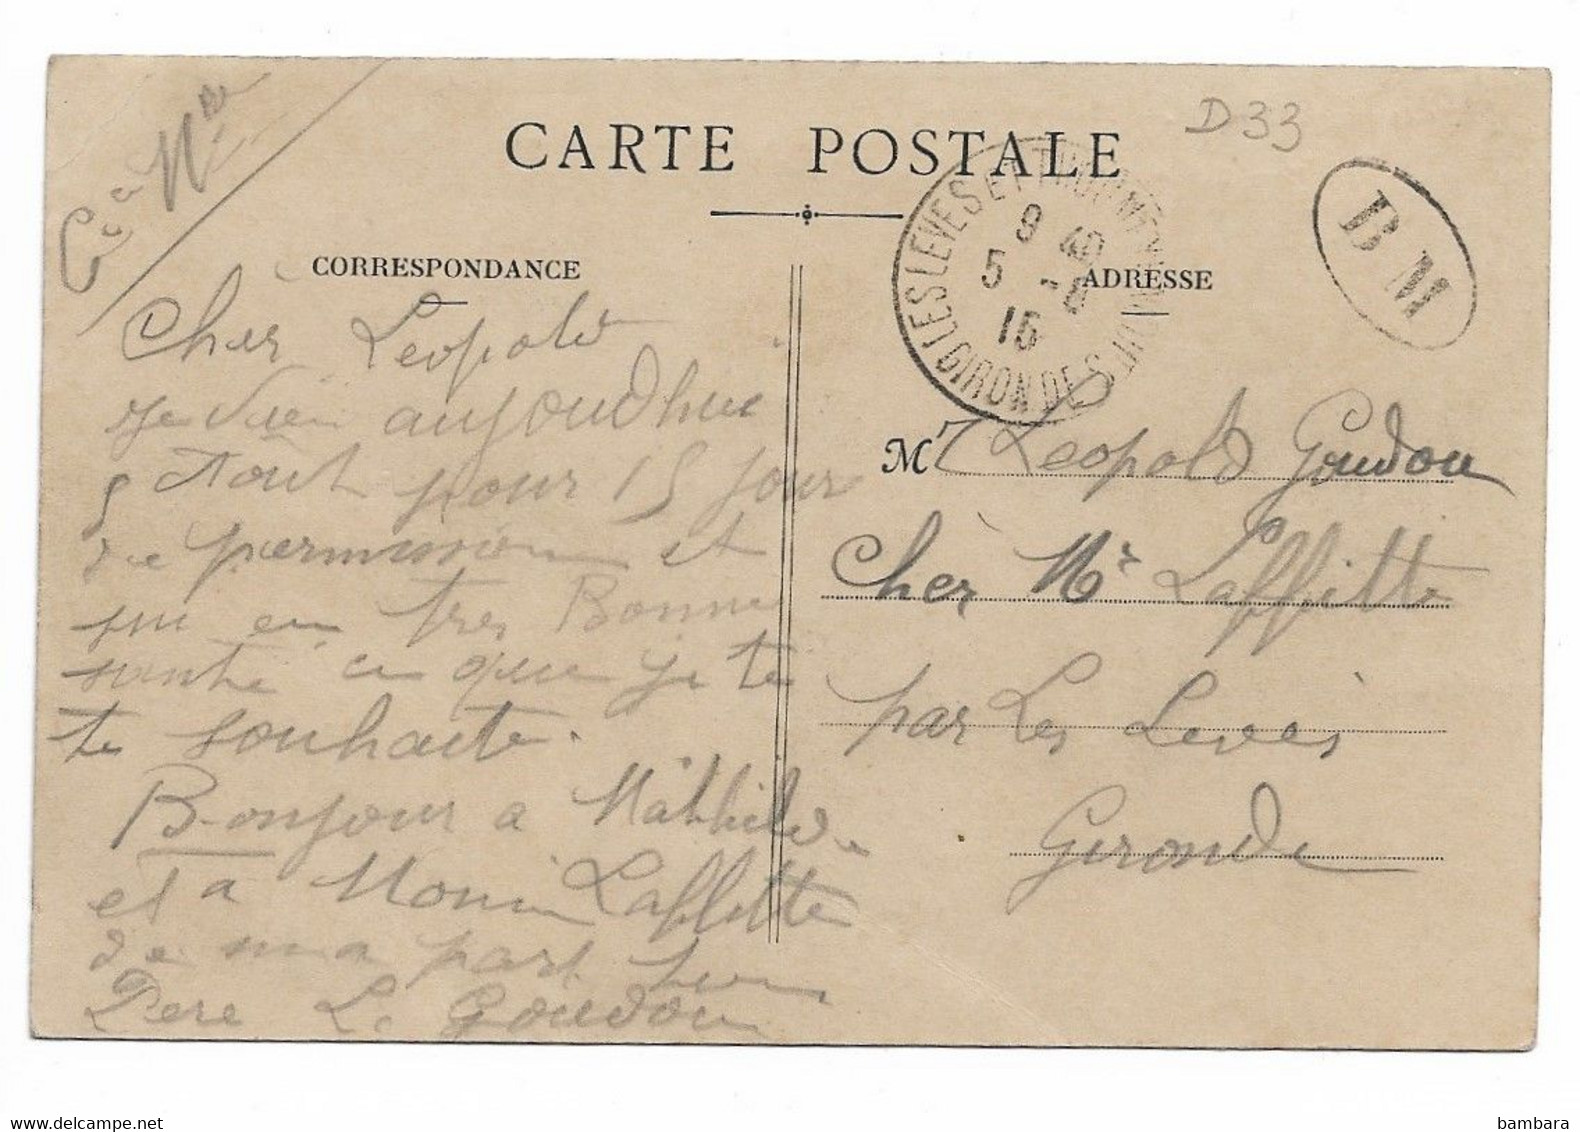 D33
CARTE POSTALE
BM
LES LEVES ET THOUMEYRAGUES
GIRONDE
9 40
5 -8
15
CORRESPONDANCE
ADRESSE
Cher Leopold
Je vien aujoudhui
pour 15 jour
de permission et
sui en tres Bonne
sante ce que je te
te souhaite.
Bonjour a Mathilde
et a Laffitte
de ma part ton
Pere L. Goudou
Mr Leopold Goudou
Cher Mr Laffitte
par Les Levès
Gironde
bambara